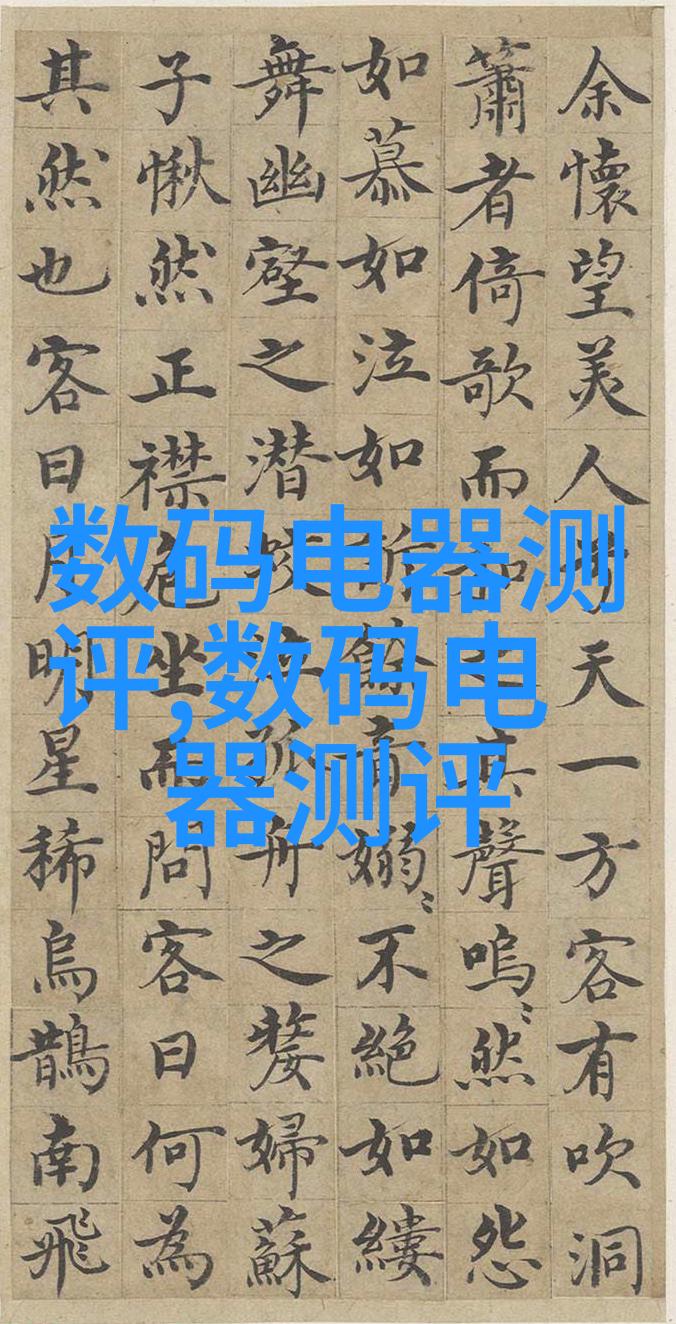 余懷望美人兮天一方客有吹洞
簫者倚歌而和之其聲嗚〻然如怨
如慕如泣如訴餘音嫋〻不絕如縷
舞幽壑之潛蛟泣孤舟之嫠婦蘇
子愀然正襟危坐而問客曰何為
其然也客曰月明星稀烏鵲南飛
数码电器测
评,数码电
器测评